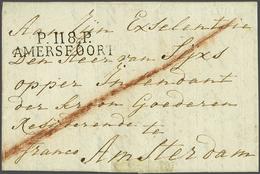 Aan Zijn Exselentie
P.118.P.
AMERSFOORT
Den Heer van
opper Intendant
der kroon Goederen
te
franco Amsterdam